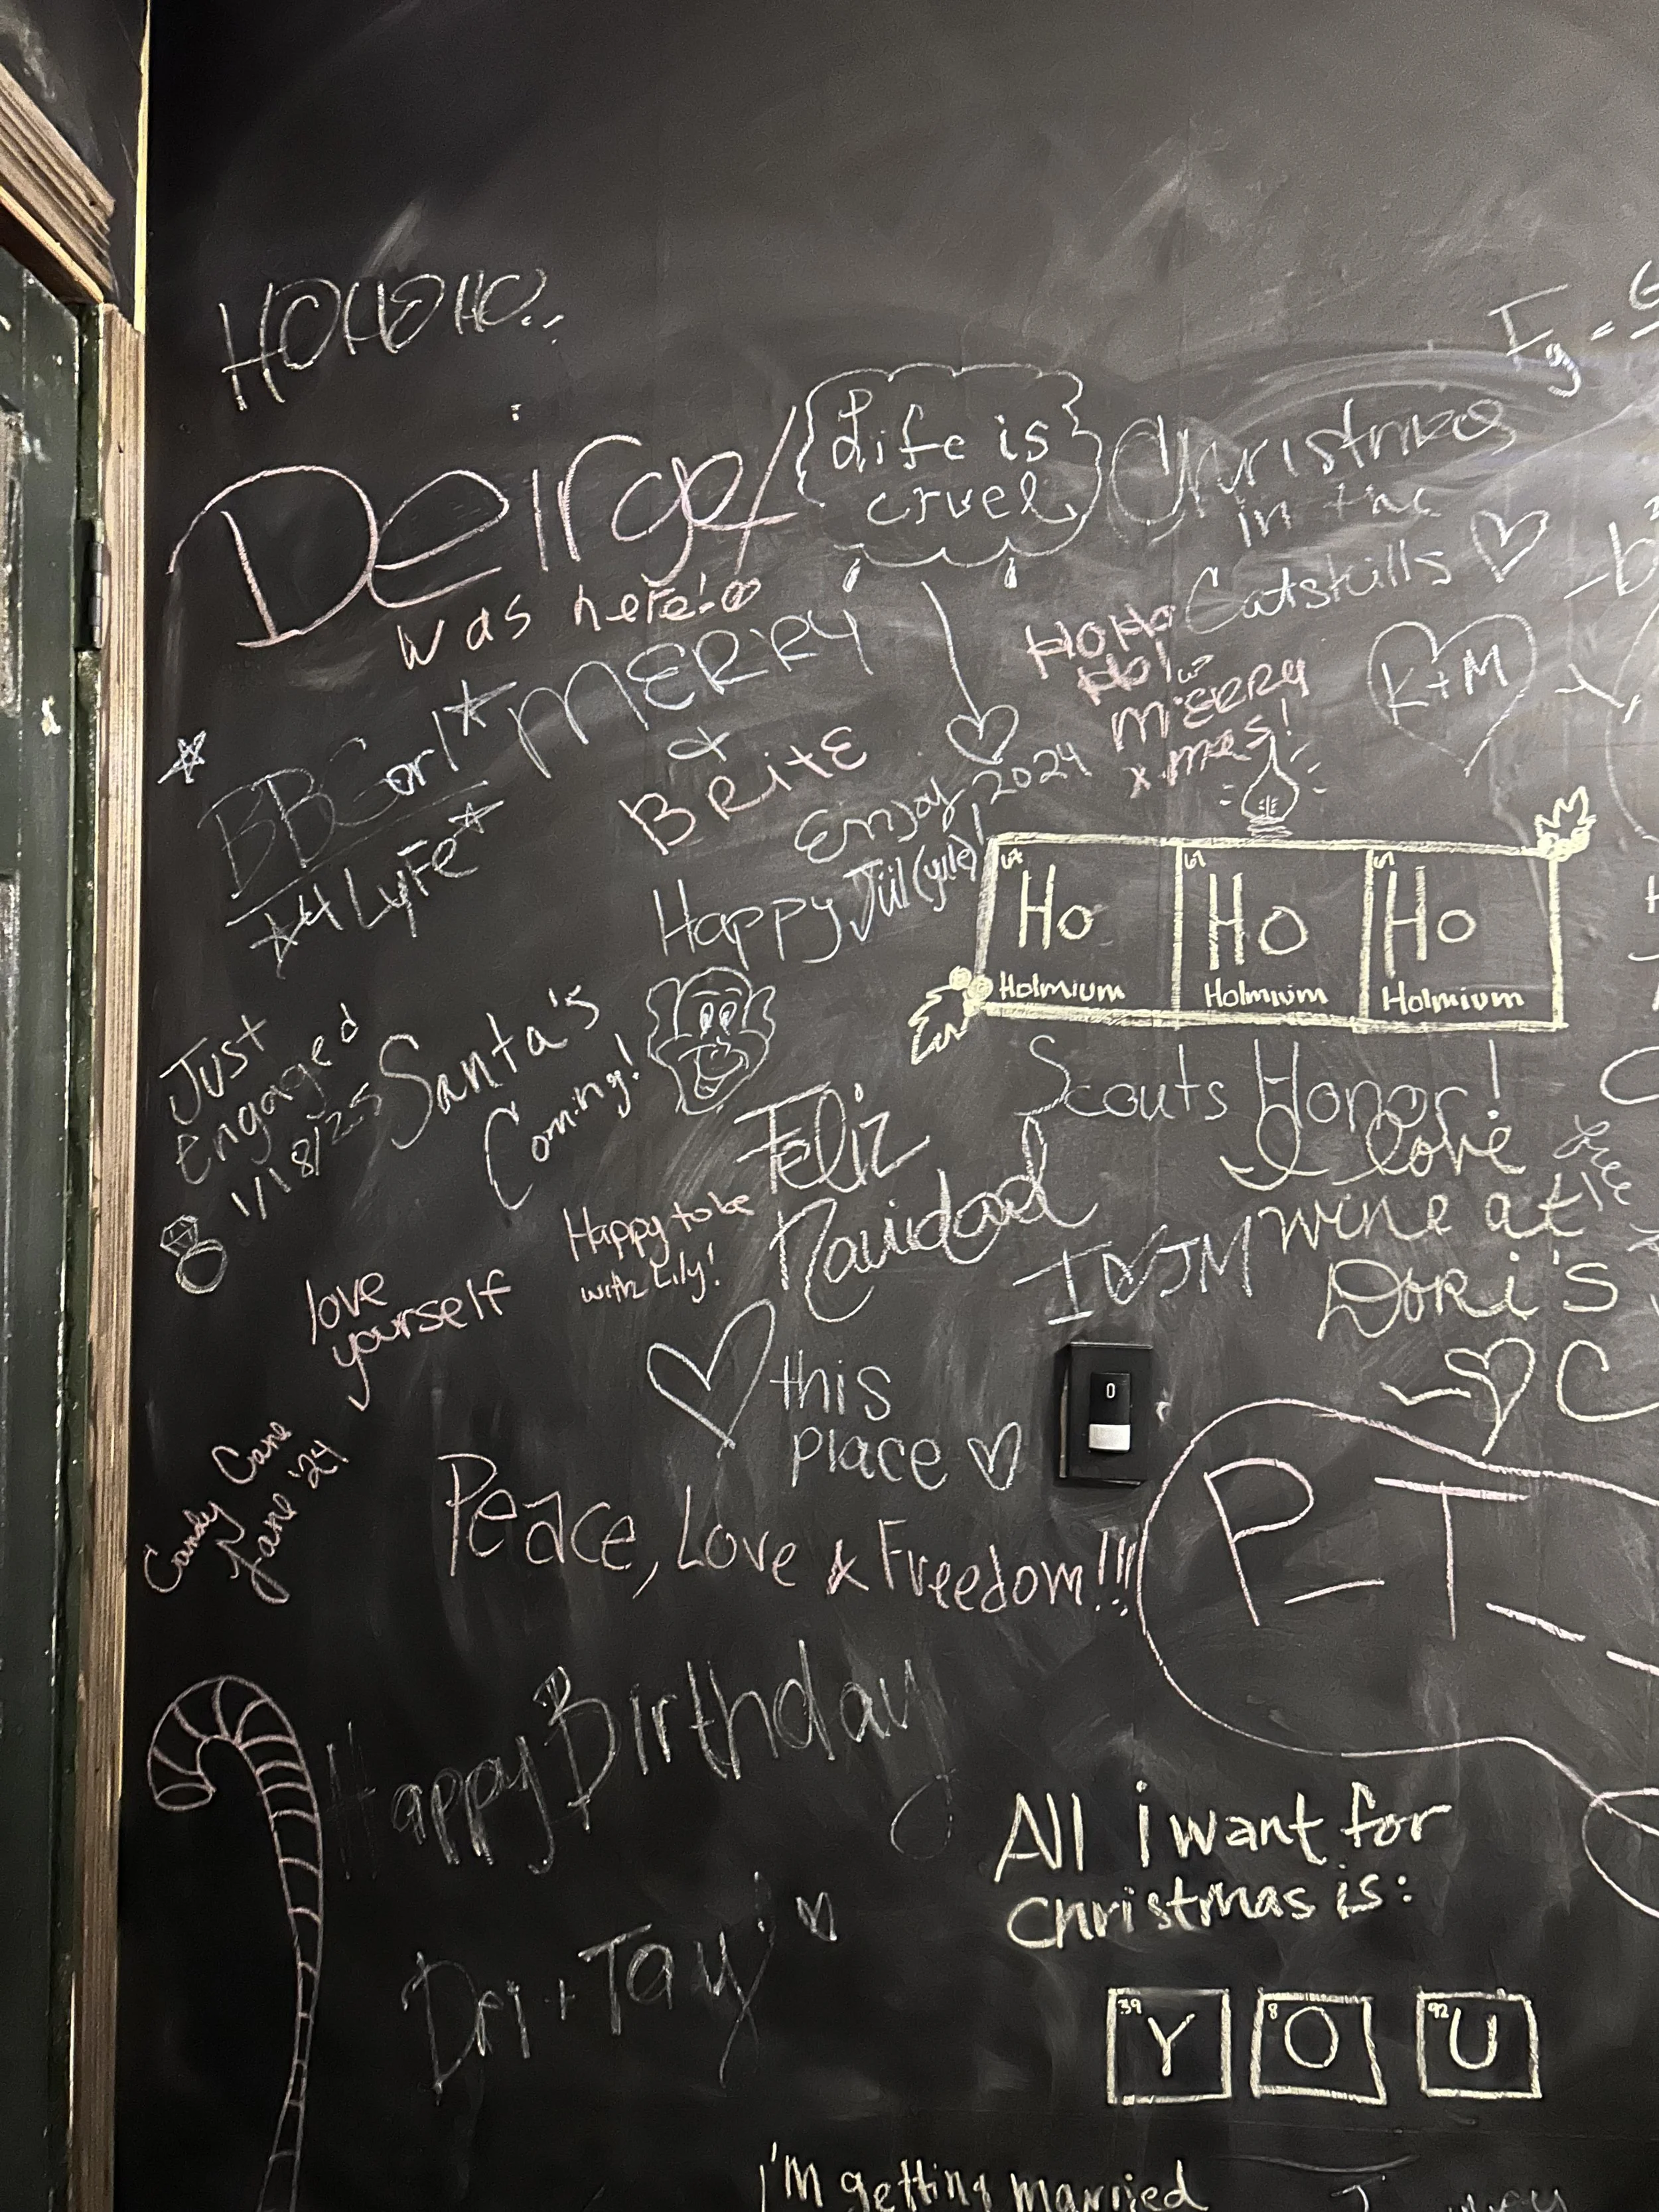 HO HO HO..
Life is
cruel
Christmas
in the
Catskills
was here!
MERRY
&
BRitE
HO HO
HO!
MERRY
x-mas!
K+M
4 LyFe
Enjoy 2024
Happy Jül (yule)!
67 Ho Holmium
67 Ho Holmium
67 Ho Holmium
Just
Engaged
1/18/25
Santa's
Coming!
Scouts Honor!
Feliz
Navidad
I love
wine at
Dori's
Happy to be
with Lily!
I ♡ JM
love
yourself
♡ this
place ♡
C
Candy Cane
Jane '24
Peace, Love & Freedom!!!
P_T_
Happy Birthday
Dri + Tay
All i want for
Christmas is:
39 Y
8 O
92 U
I'm getting married